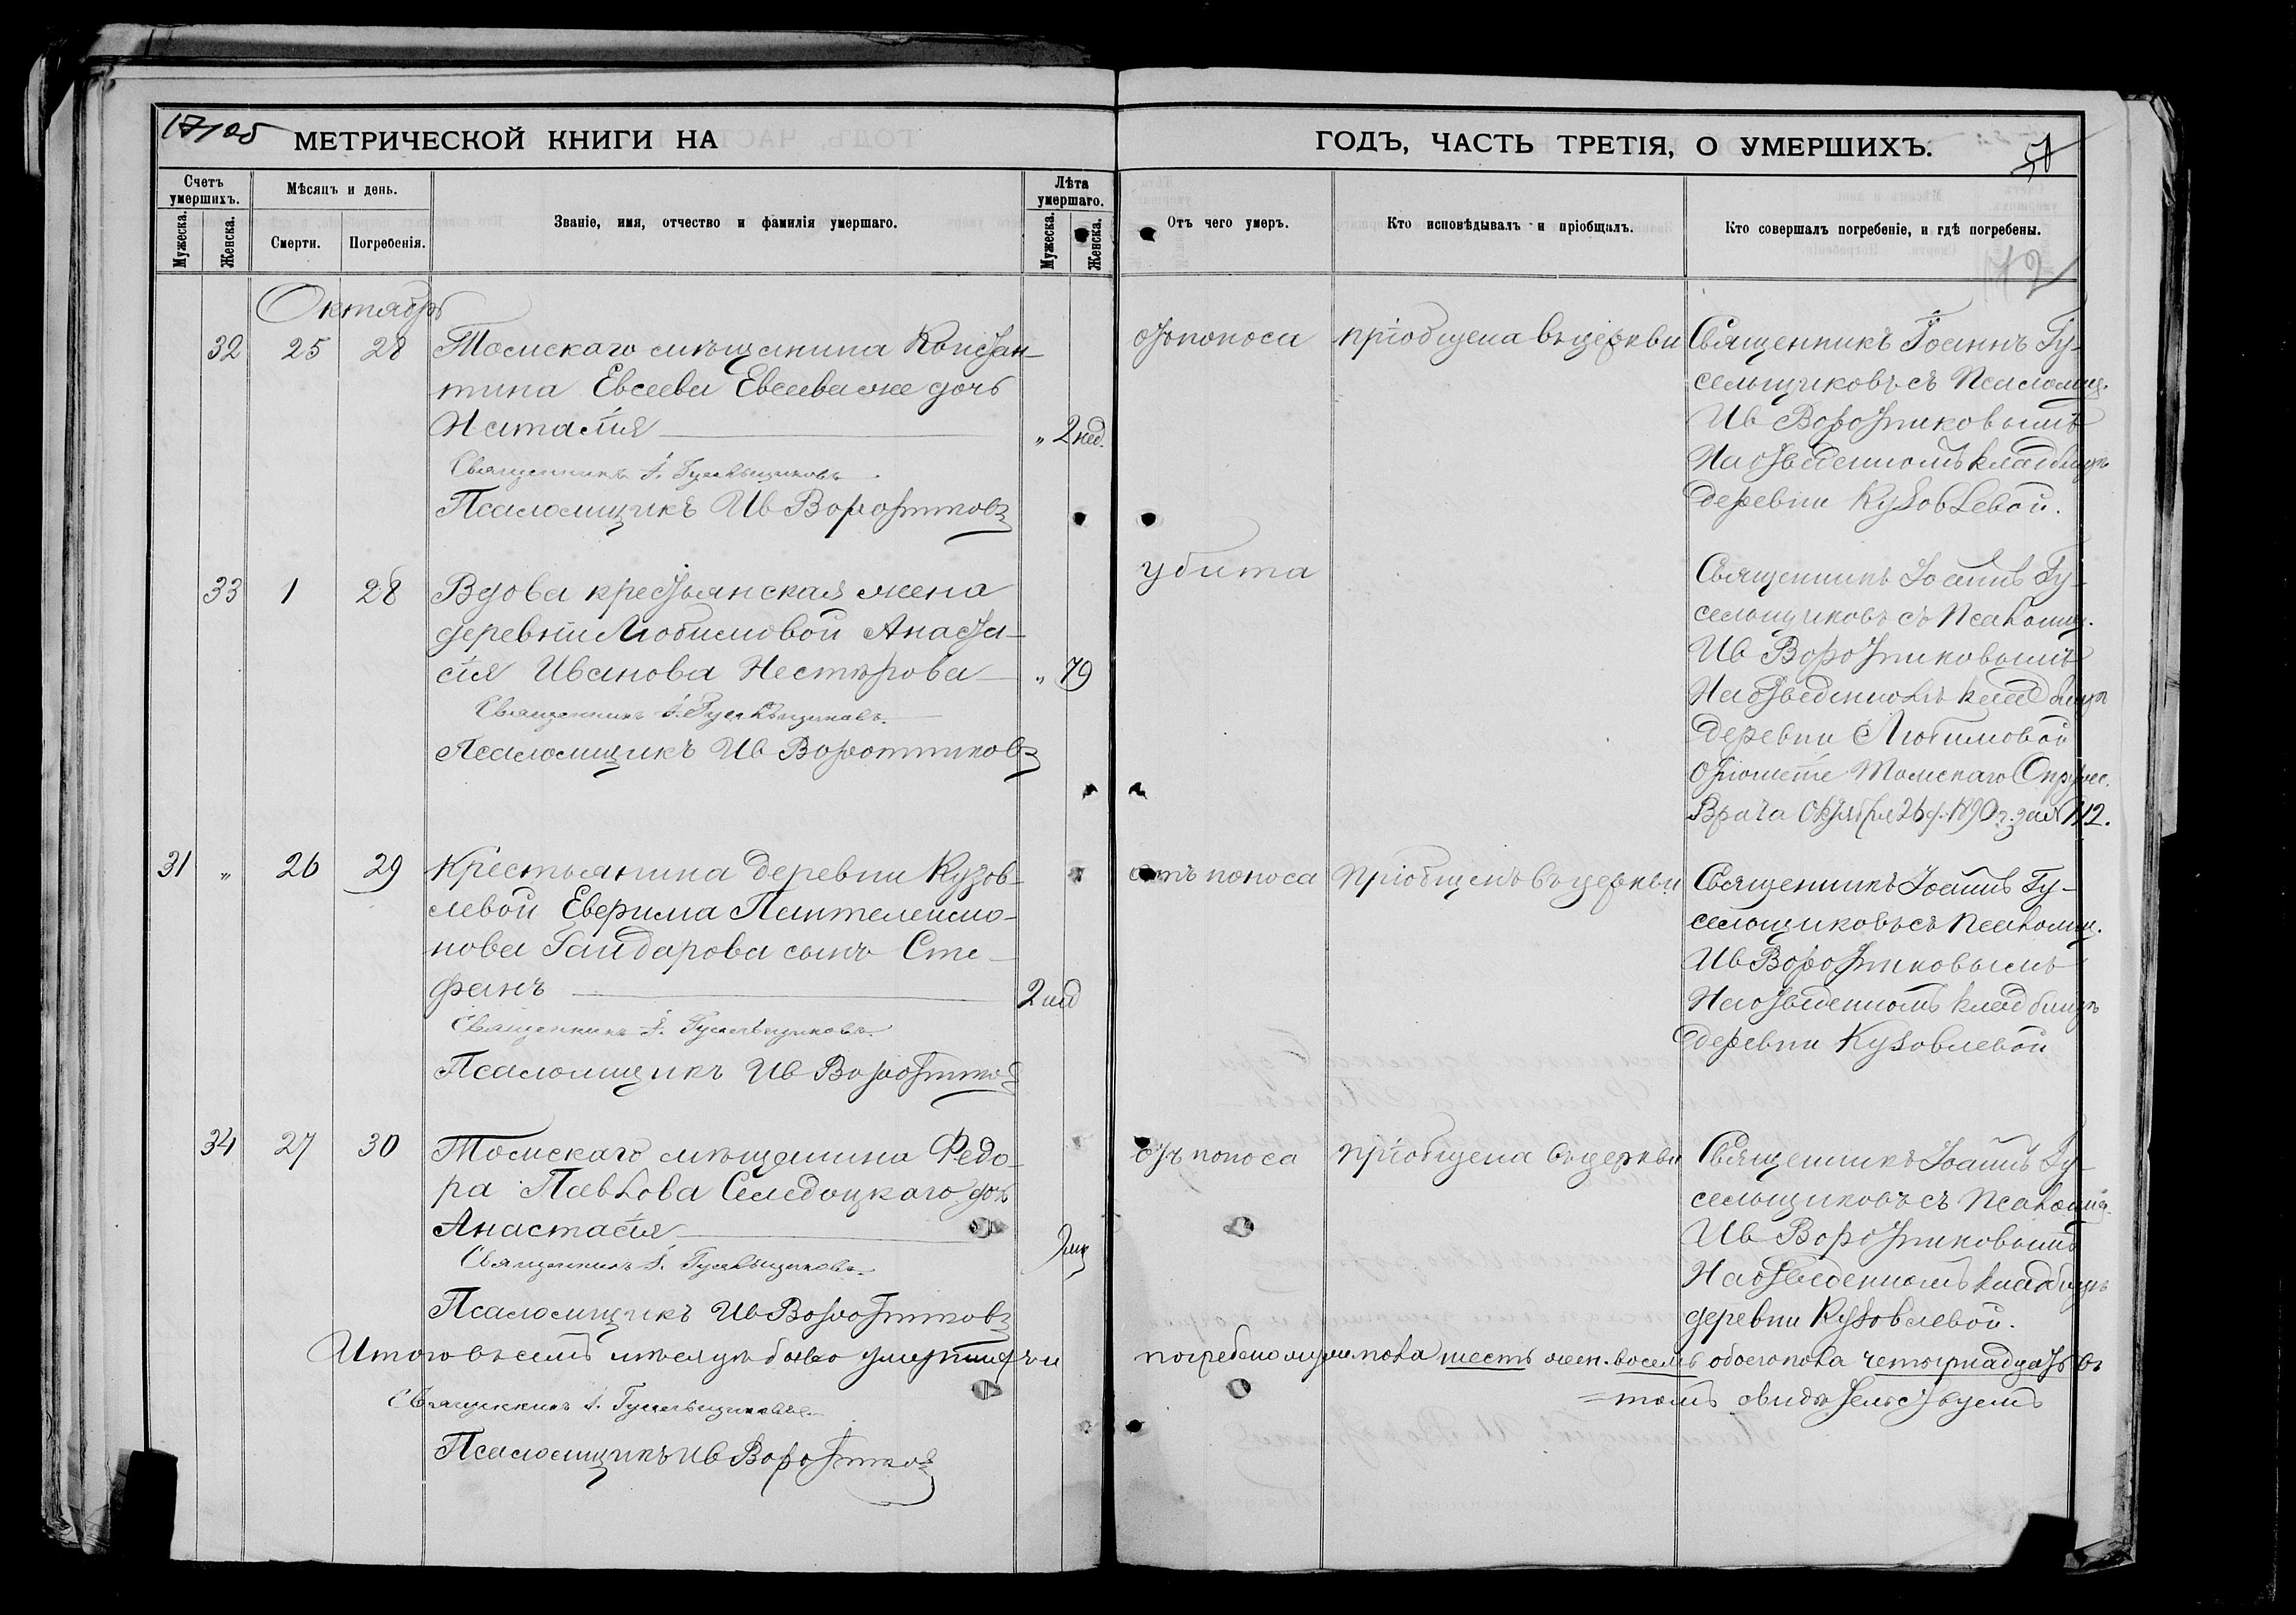 МЕТРИЧЕСКОЙ КНИГИ НА
ГОДЪ, ЧАСТЬ ТРЕТІЯ, О УМЕРШИХЪ.
Счетъ умершихъ.
Мужеска.
Женска.
Мѣсяцъ и день.
Смерти.
Погребенія.
Званіе, имя, отчество и фамилія умершаго.
Лѣта умершаго.
Мужеска.
Женска.
Отъ чего умеръ.
Кто исповѣдывалъ и пріобщалъ.
Кто совершалъ погребеніе, и гдѣ погребены.
72
Октябрь
32 25 28
Томскаго мѣщанина Констан-
тина Евсеева Евсеева же дочь
Наталія
„ 2 нед.
Священникъ І. Гусельщиковъ
Псаломщикъ Ив Воротниковъ
отъ поноса
пріобщена въ церкви
Священникъ Іоаннъ Гу-
сельщиковъ съ Псаломщ.
Ив Воротниковымъ
На отведенномъ кладбищѣ
деревни Кузовлевой.
33 1 28
Вдова крестьянская жена
деревни Любимовой Анаста-
сія Иванова Нестѣрова
„ 79
Священникъ І. Гусельщиковъ
Псаломщикъ Ив Воротниковъ
убита
Священникъ Іоаннъ Гу-
сельщиковъ съ Псаломщ.
Ив Воротниковымъ
На отведенномъ кладбищѣ
деревни Любимовой
Томскаго
Врача Октября 26
31 „ 26 29
Крестьянина деревни Кузов-
левой Пантелеимо-
нова Гайдарова сынъ Сте-
фанъ
2 нед
Священникъ І. Гусельщиковъ
Псаломщикъ Ив Воротников
отъ поноса
Пріобщенъ въ церкви
Священникъ Іоаннъ Гу-
сельщиковъ съ Псаломщ.
Ив Воротниковымъ
На отведенномъ кладбищѣ
деревни Кузовлевой
34 27 30
Томскаго мѣщанина Федо-
ра Павлова дочь
Анастасія
Священникъ І. Гусельщиковъ
Псаломщикъ Ив Воротниковъ
отъ поноса
пріобщена въ церкви
Священникъ Іоаннъ Гу-
сельщиковъ съ Псаломщ.
Ив Воротниковымъ
На отведенномъ кладбищѣ
деревни Кузовлевой.
Итого въ семъ мѣсяцѣ было умершихъ и
погребено муж. пола шесть жен. восемь обоего пола четырнадцать въ
томъ свидѣтельствуемъ
Священникъ І. Гусельщиковъ
Псаломщикъ Ив Воротников